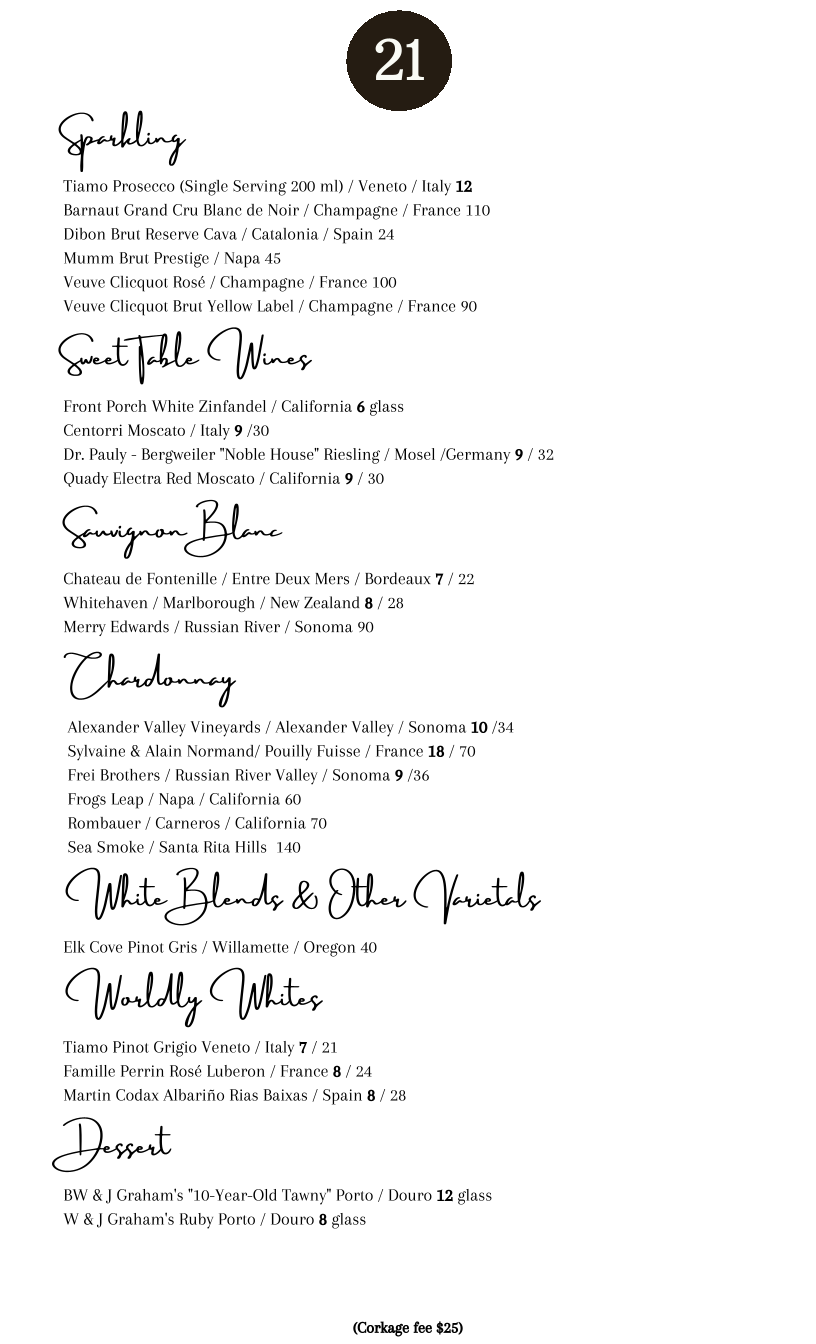 21
Sparkling
Tiamo Prosecco (Single Serving 200 ml) / Veneto / Italy 12
Barnaut Grand Cru Blanc de Noir / Champagne / France 110
Dibon Brut Reserve Cava / Catalonia / Spain 24
Mumm Brut Prestige / Napa 45
Veuve Clicquot Rosé / Champagne / France 100
Veuve Clicquot Brut Yellow Label / Champagne / France 90
Sweet Table Wines
Front Porch White Zinfandel / California 6 glass
Centorri Moscato / Italy 9 /30
Dr. Pauly - Bergweiler "Noble House" Riesling / Mosel /Germany 9 / 32
Quady Electra Red Moscato / California 9 / 30
Sauvignon Blanc
Chateau de Fontenille / Entre Deux Mers / Bordeaux 7 / 22
Whitehaven / Marlborough / New Zealand 8 / 28
Merry Edwards / Russian River / Sonoma 90
Chardonnay
Alexander Valley Vineyards / Alexander Valley / Sonoma 10 /34
Sylvaine & Alain Normand/ Pouilly Fuisse / France 18 / 70
Frei Brothers / Russian River Valley / Sonoma 9 /36
Frogs Leap / Napa / California 60
Rombauer / Carneros / California 70
Sea Smoke / Santa Rita Hills 140
White Blends & Other Varietals
Elk Cove Pinot Gris / Willamette / Oregon 40
Worldly Whites
Tiamo Pinot Grigio Veneto / Italy 7 / 21
Famille Perrin Rosé Luberon / France 8 / 24
Martin Codax Albariño Rias Baixas / Spain 8 / 28
Dessert
BW & J Graham's "10-Year-Old Tawny" Porto / Douro 12 glass
W & J Graham's Ruby Porto / Douro 8 glass
(Corkage fee $25)